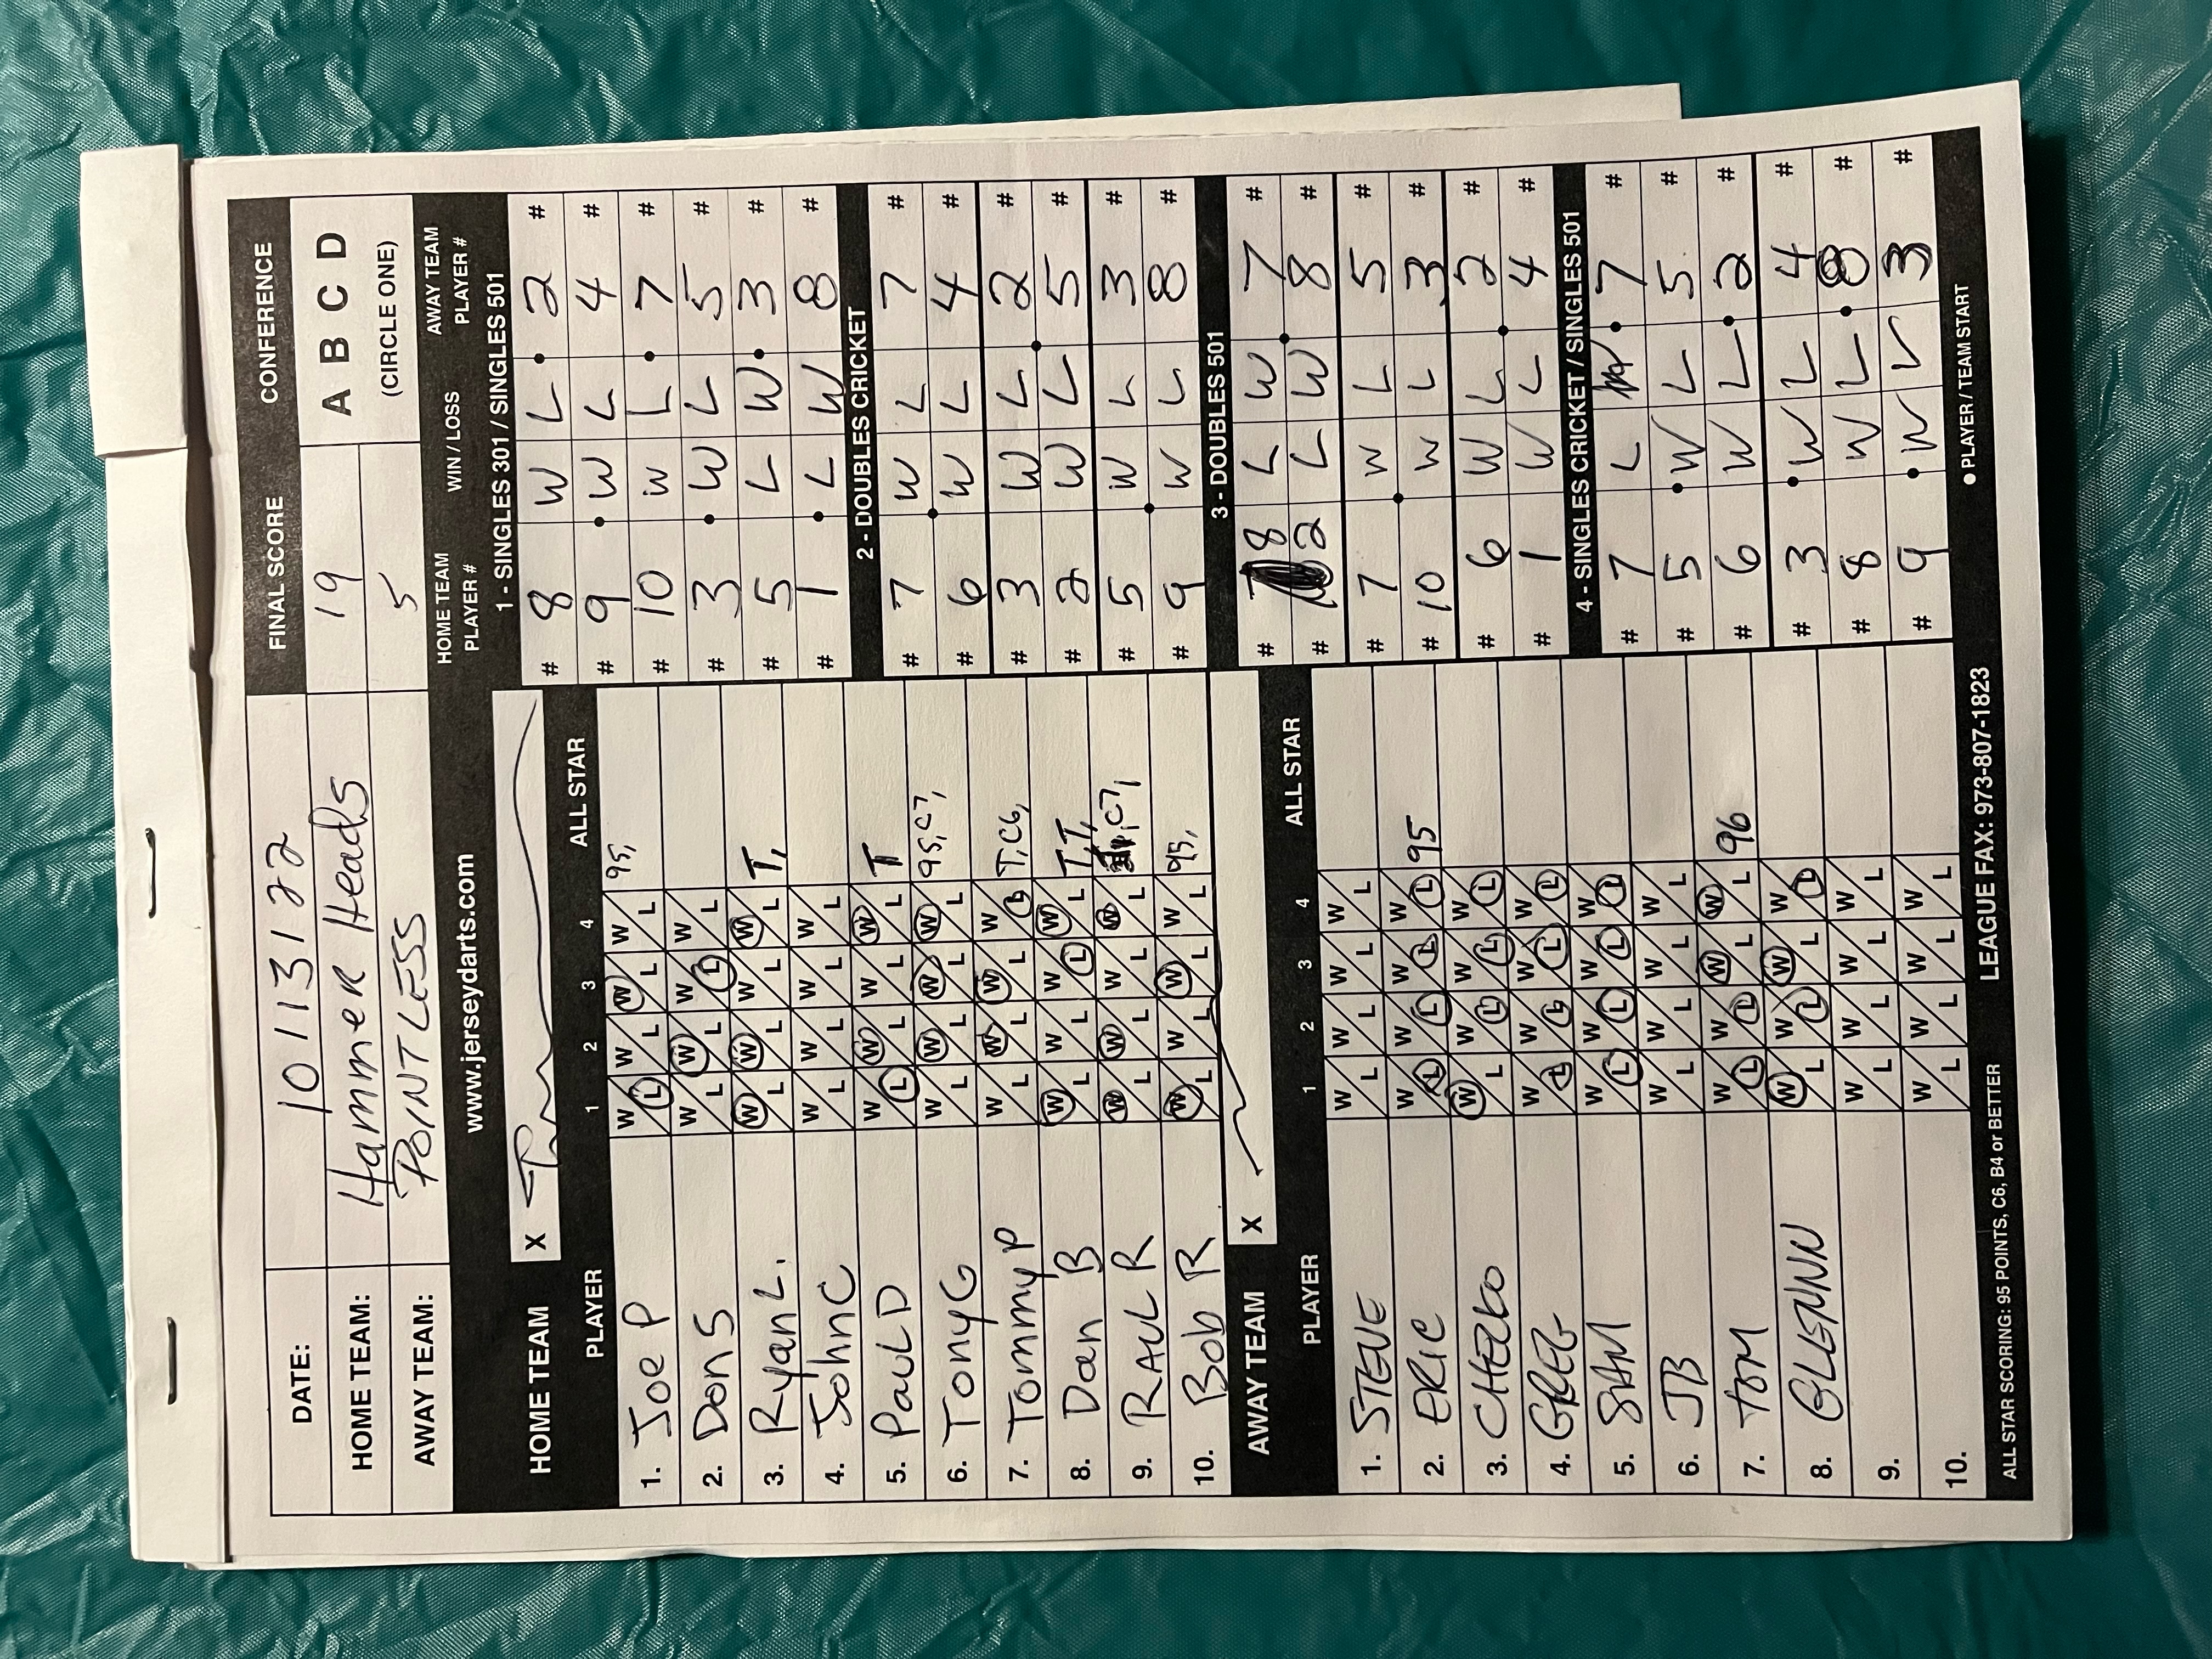 DATE: 10/13/22 FINAL SCORE CONFERENCE
HOME TEAM: Hammer Heads 19 A B C D
AWAY TEAM: POINTLESS 5 (CIRCLE ONE)
www.jerseydarts.com
HOME TEAM X
PLAYER 1 2 3 4 ALL STAR
1. Joe P W L W L W L W L 95,
2. Don S W L W L W L W L
3. Ryan L. W L W L W L W L T,
4. John C W L W L W L W L
5. Paul D W L W L W L W L T
6. Tony G W L W L W L W L 95,C7,
7. Tommy P W L W L W L W L T,C6,
8. Dan B W L W L W L W L T,T,
9. RAUL R W L W L W L W L ,C7,
10. Bob R W L W L W L W L 95,
AWAY TEAM X
PLAYER 1 2 3 4 ALL STAR
1. STEVE W L W L W L W L
2. ERIC W L W L W L W L 95
3. W L W L W L W L
4. GREG W L W L W L W L
5. SAM W L W L W L W L
6. JB W L W L W L W L
7. TOM W L W L W L W L 96
8. GLENN W L W L W L W L
9. W L W L W L W L
10. W L W L W L W L
ALL STAR SCORING: 95 POINTS, C6, B4 or BETTER LEAGUE FAX: 973-807-1823
HOME TEAM PLAYER # WIN / LOSS AWAY TEAM PLAYER #
1 - SINGLES 301 / SINGLES 501
# 8 W L 2 #
# 9 W L 4 #
# 10 W L 7 #
# 3 W L 5 #
# 5 L W 3 #
# 1 L W 8 #
2 - DOUBLES CRICKET
# 7 W L 7 #
# 6 W L 4 #
# 3 W L 2 #
# 2 W L 5 #
# 5 W L 3 #
# 9 W L 8 #
3 - DOUBLES 501
# 8 L W 7 #
# 2 L W 8 #
# 7 W L 5 #
# 10 W L 3 #
# 6 W L 2 #
# 1 W L 4 #
4 - SINGLES CRICKET / SINGLES 501
# 7 L W 7 #
# 5 W L 5 #
# 6 W L 2 #
# 3 W L 4 #
# 8 W L 8 #
# 9 W L 3 #
● PLAYER / TEAM START